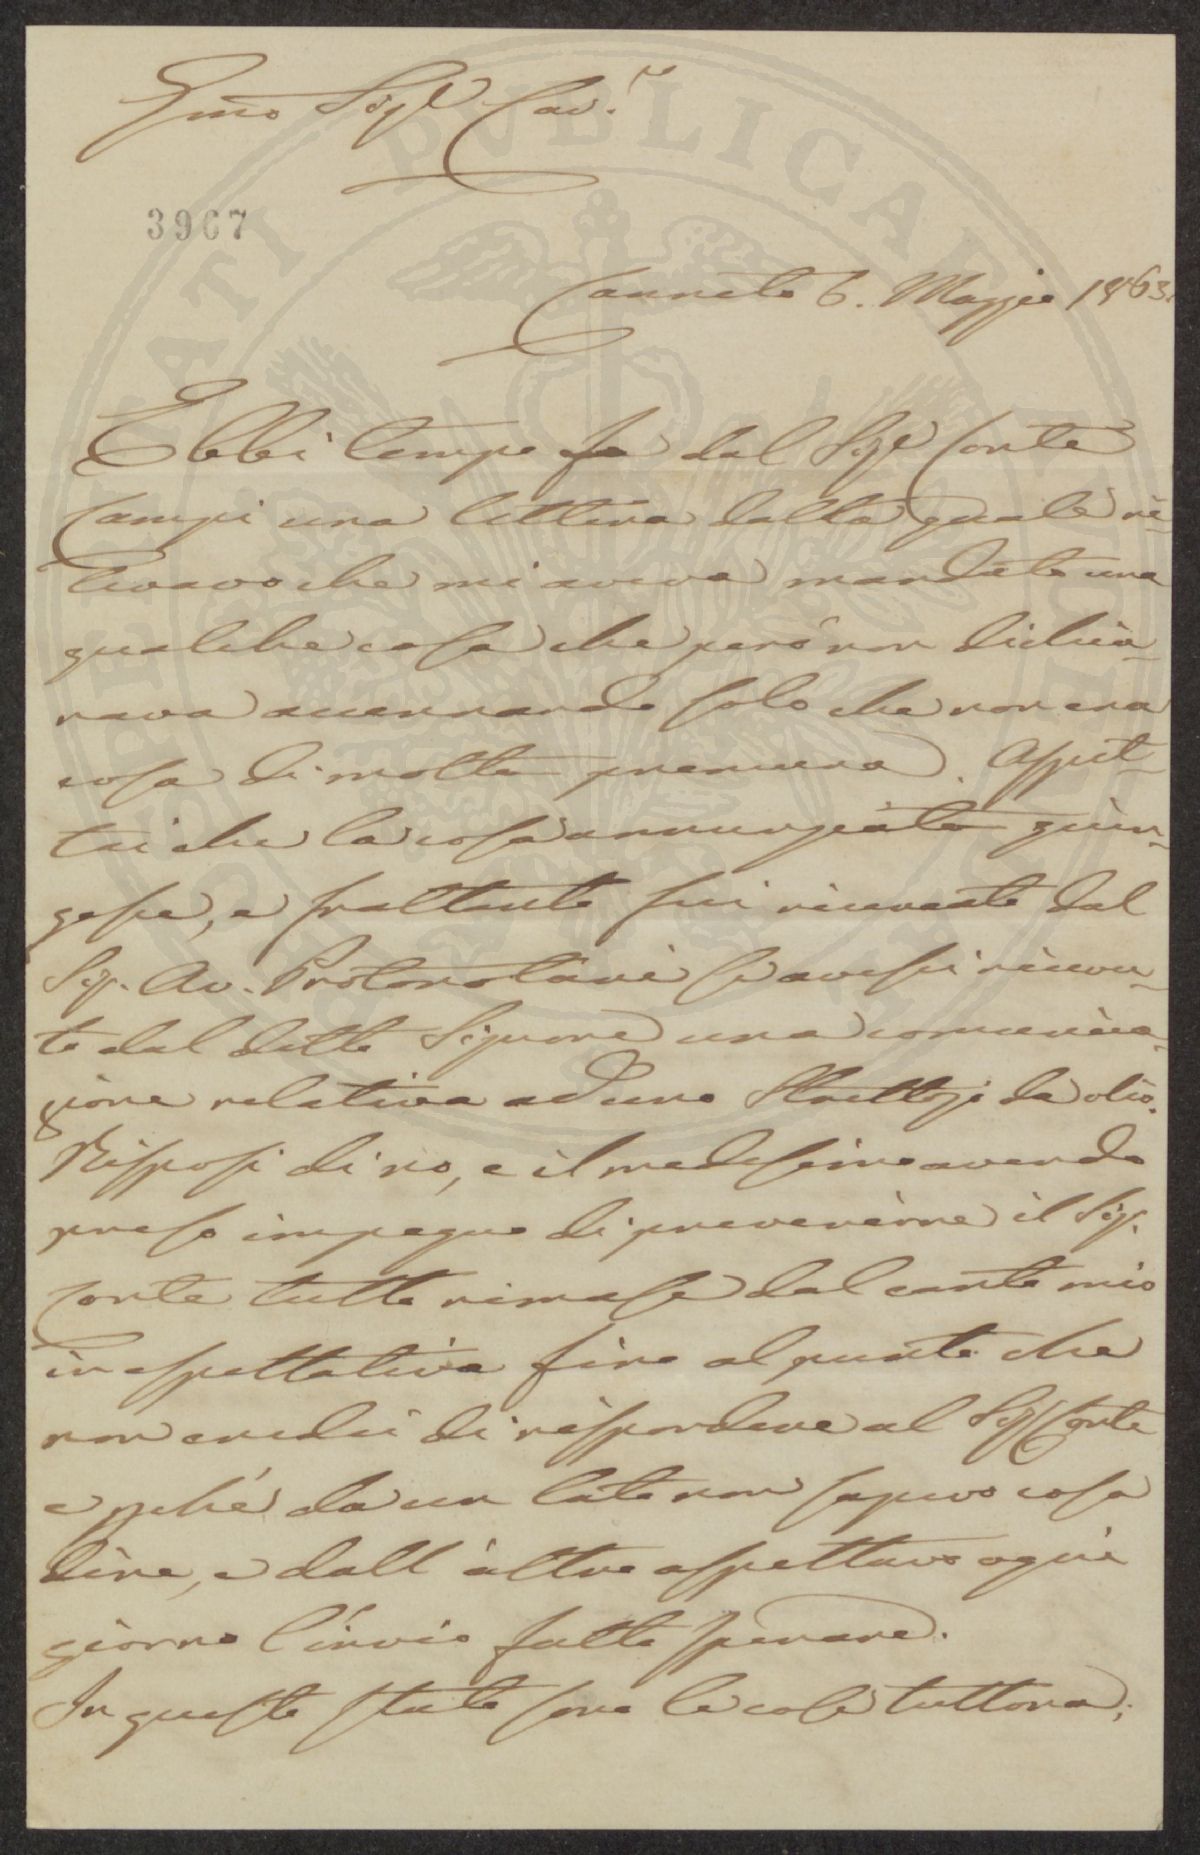 Gmo Sigr Cavr
3967
Canneto 6. Maggio 1863.
Ebbi tempo fa dal Sigr Conte
Campi una lettera dalla quale ri-
levavo che mi aveva mandato una
qualche cosa che però non dichia-
rava accennando solo che non era
cosa di molta premura. Aspet-
tai che la cosa annunziata giun-
gesse, e frattanto fui ricercato dal
Sig. Av. Protonotari se avessi ricevu-
to dal detto Signore una comunica-
zione relativa ad uno Strettojo da olio.
Risposi di no, e il medesimo avendo
preso impegno di prevenirne il Sig.
Conte tutto rimase dal canto mio
in aspettativa fino al punto che
non credei di rispondere al Sig Conte
e pché da un lato non sapevo cosa
dire, e dall'altro aspettavo ogni
giorno l'invio fatto sperare.
In questo stato sono le cose tuttora;
PERVSINAE